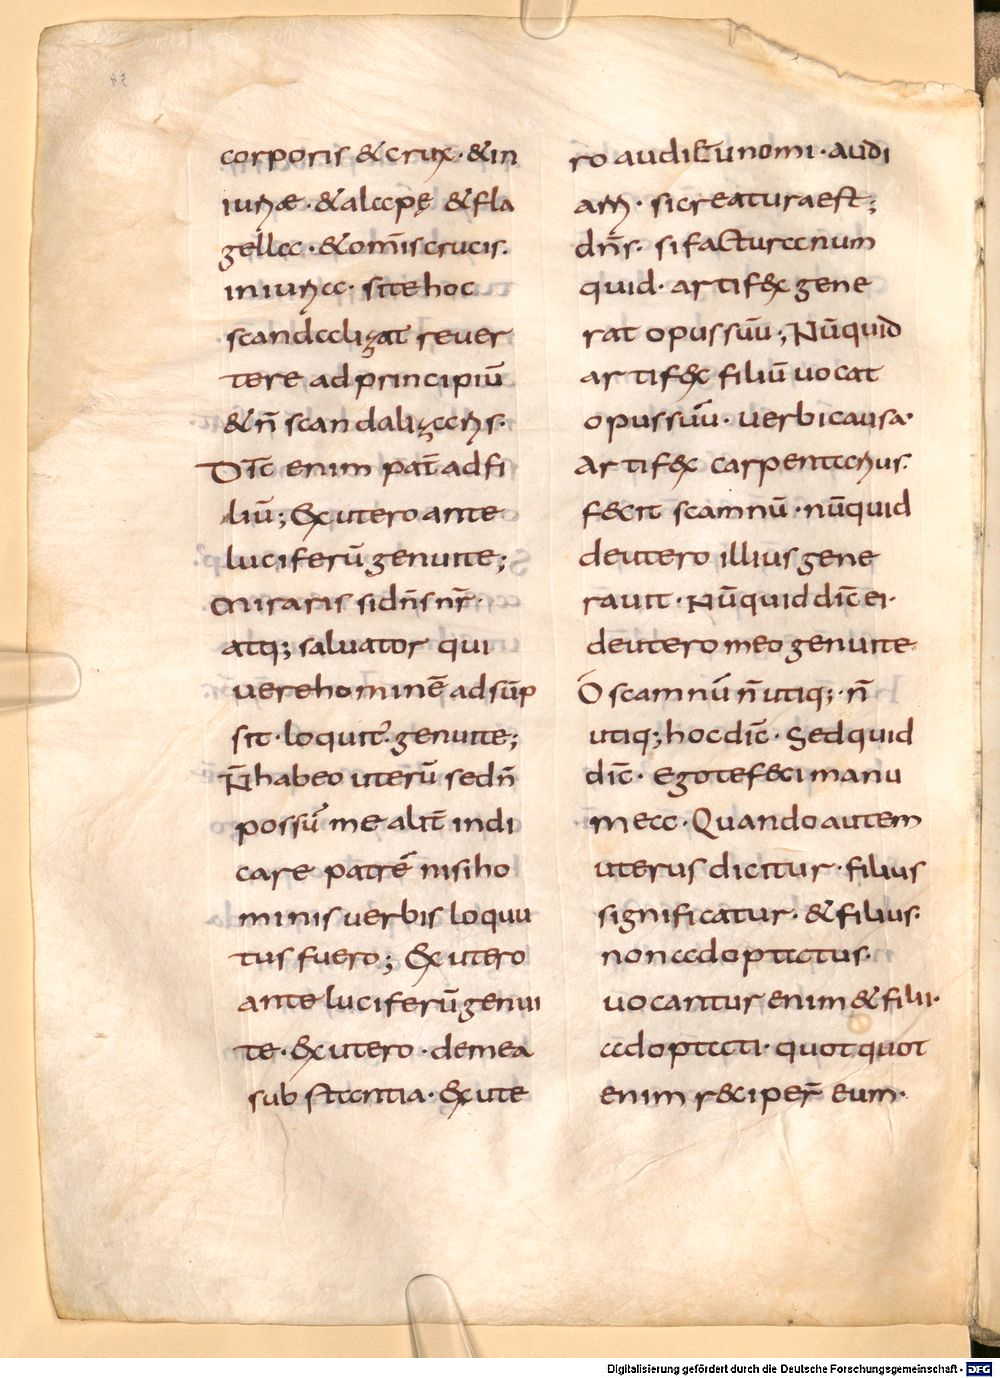 corporis & crux · & in
iuriæ · & alapę & fla
gella · & om̄is crucis.
iniuria · si te hoc
scandalizat reuer
tere ad principiū
& n̄ scandalizaris.
Dic̄ enim pat̄ ad fi
liū; Ex utero ante
luciferū genui te;
Miraris si dn̄s nr̄
atq; saluator qui
uere hominē adsūp
sit · loquit̄ · genui te;
N̄ habeo uterū sed n̄
possū me alit̄ indi
care patrē nisi ho
minis uerbis loquu
tus fuero; Ex utero
ante luciferū genui
te · Ex utero · de mea
substantia · Ex ute
ro audi & unomi · audi
arri · si creatura est;
dn̄s · si factura num
quid · artifex gene
rat opus suū; Nūquid
artifex filiū uocat
opus suū · uerbi causa ·
Artifex carpentarius.
fecit scamnū · nūquid
de utero illius gene
rauit · Nūquid dic̄ ei ·
de utero meo genui te
O scamnū n̄ utiq; · n̄
utiq; hoc dic̄ · Sed quid
dic̄ · Ego te feci manu
mea · Quando autem
uterus dicitur · filius
significatur · & filius ·
non adoptatus ·
uocantur enim & filii ·
adoptati · quotquot
enim reciper̄ eum ·
Digitalisierung gefördert durch die Deutsche Forschungsgemeinschaft - DFG